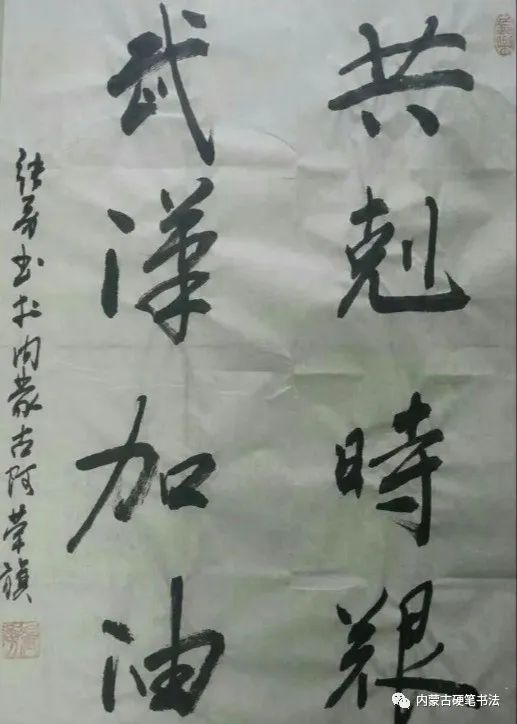 共剋時艱
武漢加油
张书於内蒙古阿荣旗
内蒙古硬笔书法